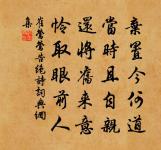 棄置今何道
當時且自親
還將舊來意
憐取眼前人
崔鶯鶯告絕詩詞典網
集